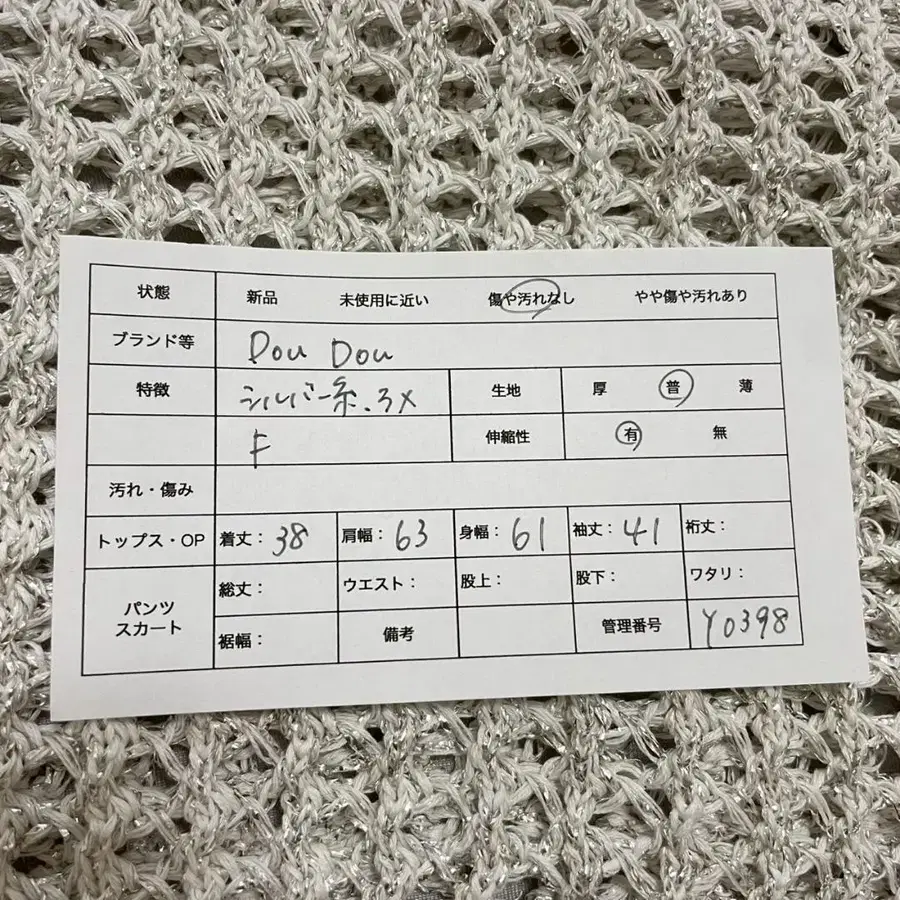 状態 新品 未使用に近い 傷や汚れなし やや傷や汚れあり
ブランド等 Dou Dou
特徴 シルバー糸、ラメ 生地 厚 普 薄
F 伸縮性 有 無
汚れ・傷み
トップス・OP 着丈：38 肩幅：63 身幅：61 袖丈：41 裄丈：
パンツ スカート 総丈： ウエスト： 股上： 股下： ワタリ：
裾幅： 備考 管理番号 Y0398